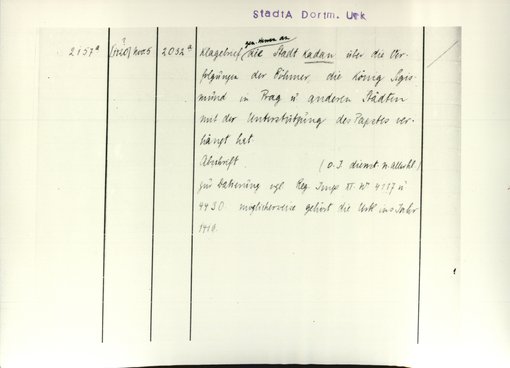 StadtA Dortm. Urk
2157a (1420) Nov. 5 2032a Klagebrief gen. Herren an die Stadt Kadan über die Ver-
?
folgungen der Böhmen, die König Sigis-
mund in Prag u. anderen Städten
mit der Unterstützung des Papstes ver-
hängt hat.
Abschrift. (o. J. dienst. n. allerhl.)
zur Datierung vgl. Reg. Imp. XI. Nr 4117 u
4430. möglicherweise gehört die Urk ins Jahr
1419.